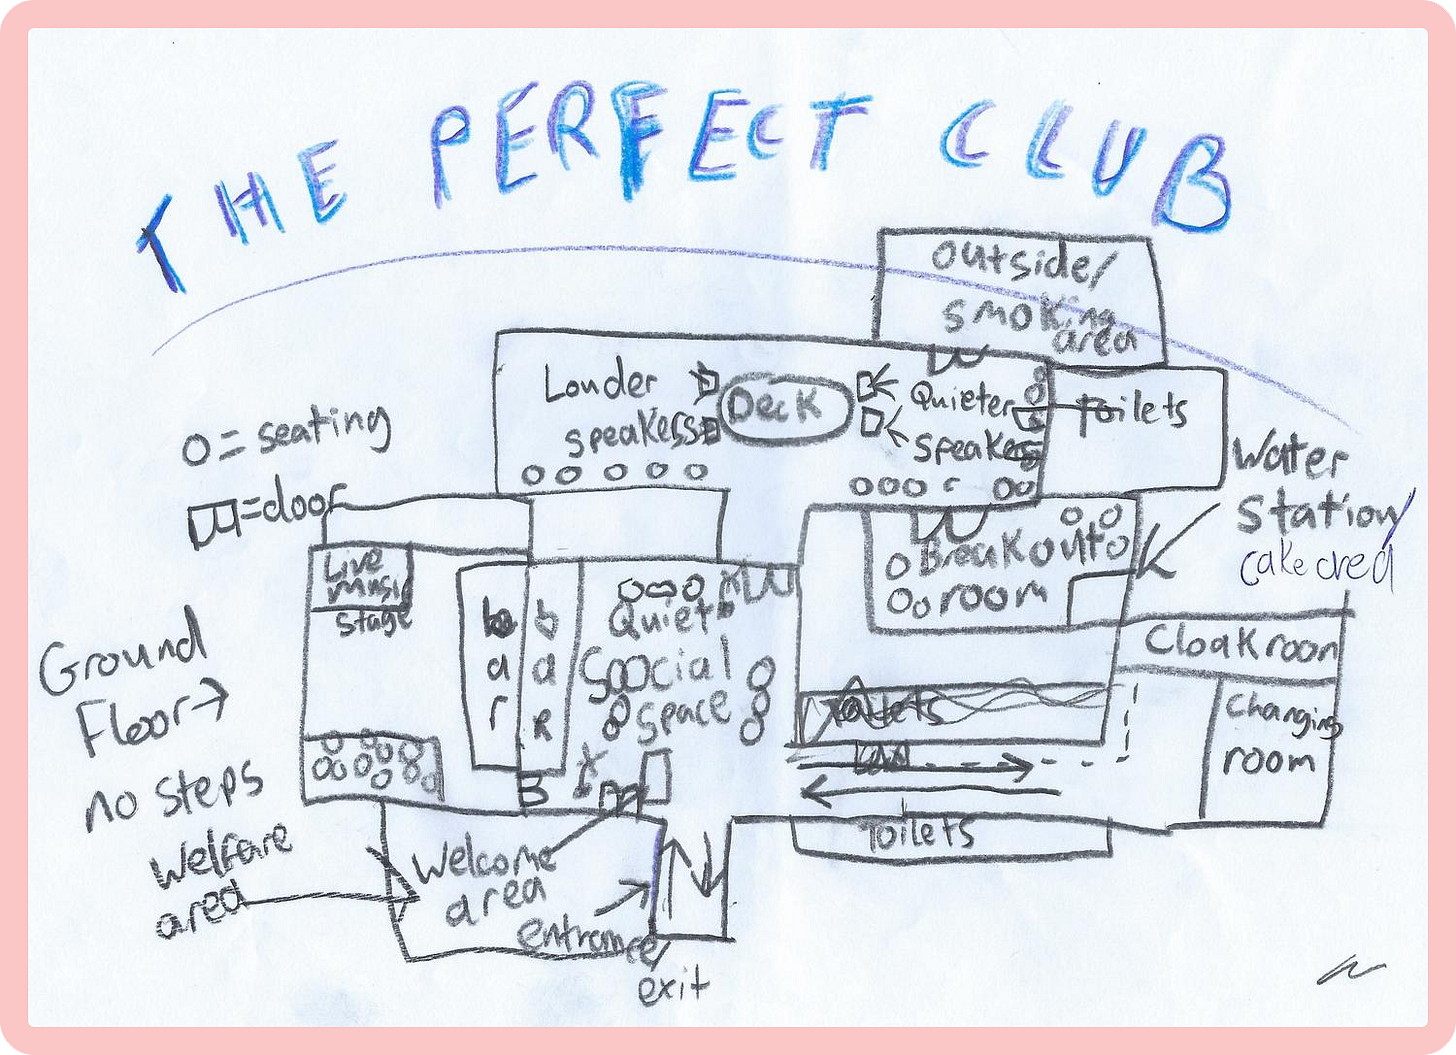 THE PERFECT CLUB
outside/
smoking
area
Louder
speakers
Deck
Quieter
speakers
toilets
O = seating
=door
Water
Station/
cake area
Live
music
stage
bar
bar
Quiet
Soocial
space
Breakout
room
Cloakroom
Changing
room
Toilets
Toilets
Ground
Floor →
no steps
Welfare
area
Welcome
area
entrance/
exit